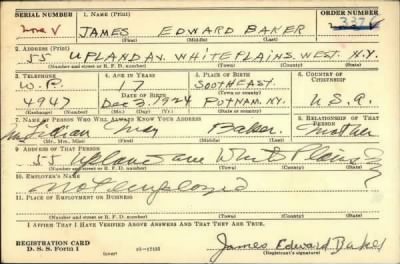 SERIAL NUMBER 1. NAME (Print) ORDER NUMBER
JAMES EDWARD BAKER
(First) (Middle) (Last)
2. ADDRESS (Print)
55 UPLAND AV. WHITE PLAINS, WEST. N.Y.
(Number and street or R. F. D. number) (Town) (County) (State)
3. TELEPHONE 4. AGE IN YEARS 5. PLACE OF BIRTH 6. COUNTRY OF CITIZENSHIP
W.P. SOUTHEAST
(Town or county)
4947 Dec 3, 1924 PUTNAM. N.Y. U.S.A.
(Exchange) (Number) (Mo.) (Day) (Yr.) (State or country)
7. NAME OF PERSON WHO WILL ALWAYS KNOW YOUR ADDRESS 8. RELATIONSHIP OF THAT PERSON
Lillian May Baker Mother
(Mr., Mrs., Miss) (First) (Middle) (Last)
9. ADDRESS OF THAT PERSON
55 Upland ave White Plains
(Number and street or R. F. D. number) (Town) (County) (State)
10. EMPLOYER'S NAME
not employed
11. PLACE OF EMPLOYMENT OR BUSINESS
(Number and street or R. F. D. number) (Town) (County) (State)
I AFFIRM THAT I HAVE VERIFIED ABOVE ANSWERS AND THAT THEY ARE TRUE.
REGISTRATION CARD
D. S. S. Form 1 (over) James Edward Baker
(Registrant's signature)